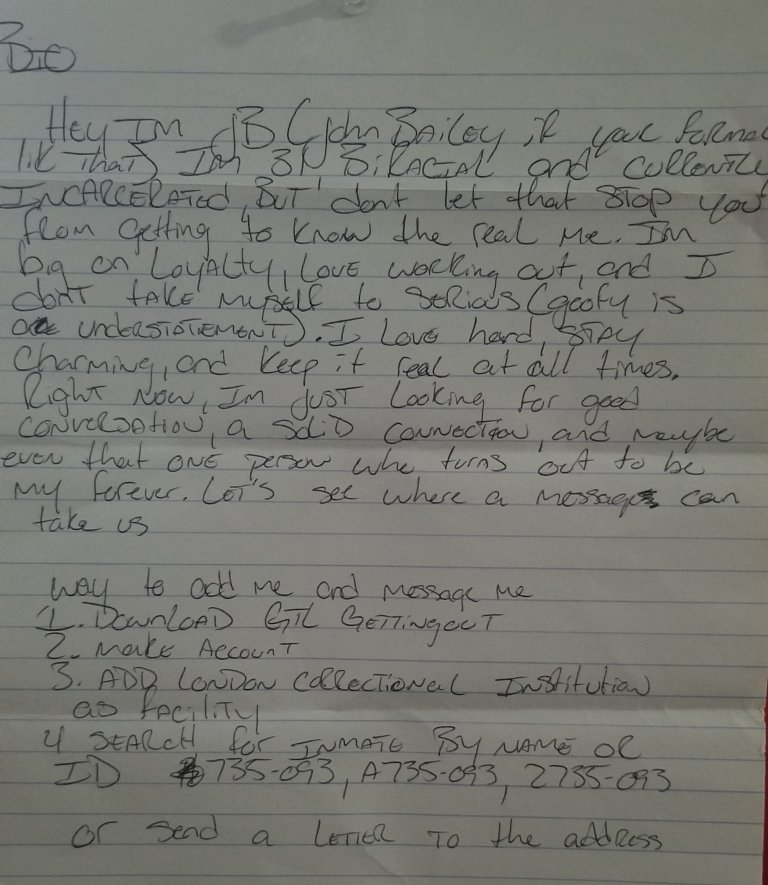 Bio
Hey Im JB (John Bailey if your formal
lik that) Im 31 Biracial and currently
Incarcerated, But don't let that stop you
from getting to know the real me. Im
big on Loyalty, Love working out, and I
don't take myself to serious (goofy is
understatement). I love hard, stay
charming, and keep it real at all times.
Right now, Im just looking for good
conversation, a solid connection, and maybe
even that one person who turns out to be
my forever. Let's see where a message can
take us
way to add me and message me
1. Download GTL Gettingout
2. Make Account
3. ADD London Correctional Institution
as facility
4 Search for inmate by name or
ID 735-093, A735-093, 2735-093
or send a letter to the address